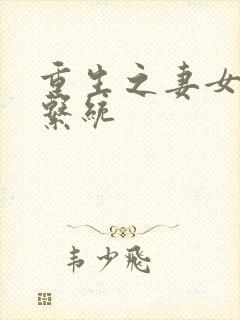 重生之妻女
繫統
韦少飛